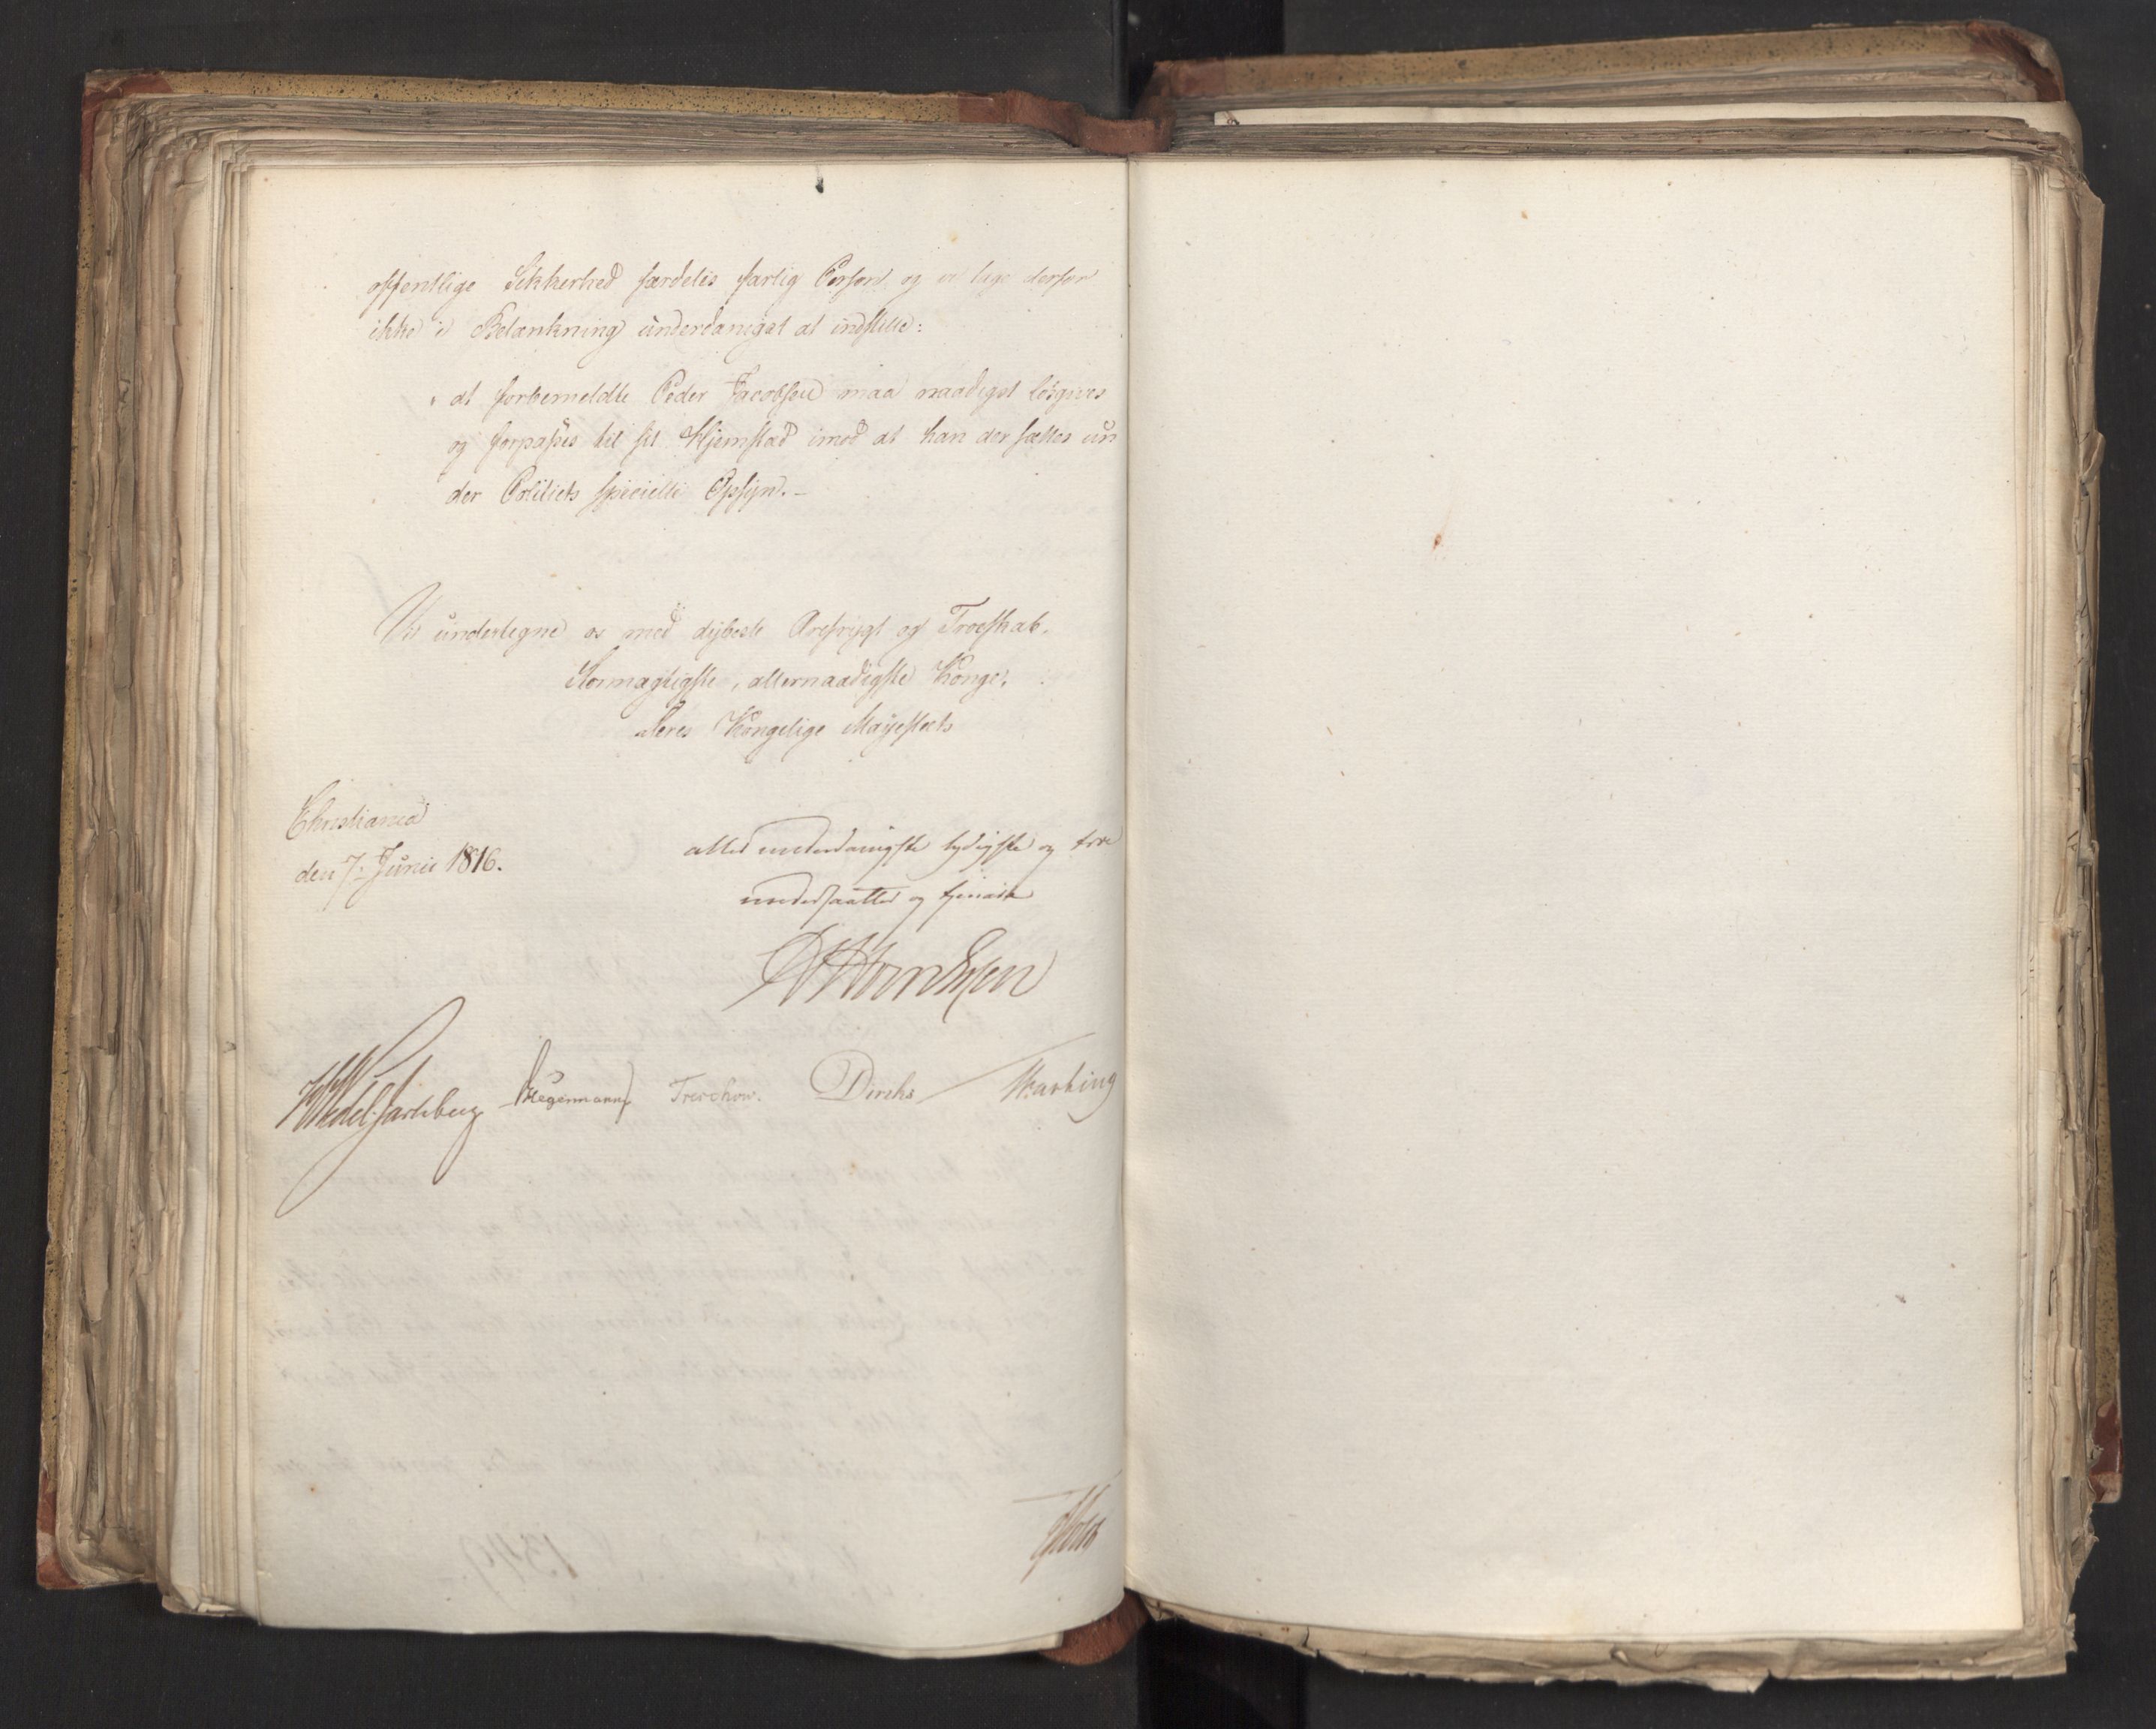 offentlige Sikkerhed særdeles farlig Person og vi tage derfor
ikke i Betænkning underdanigst at indstille:
at forbemeldte Peder Jacobsen maa naadigst løsgives
og forpasses til sit Hjemstæd imod at han der sættes un
der Politiets specielle Opsyn.
Vi undertegne os med dybeste Ærefrygt og Troeskab.
Stormægtigste, allernaadigste Konge!
Deres Kongelige Mayestæts
Christiania
den 7. Junii 1816.
allerunderdanigste lydigste og troe
undersaatter og tjenere
Wedel Jarlsberg Hegermann Treschow. Diriks